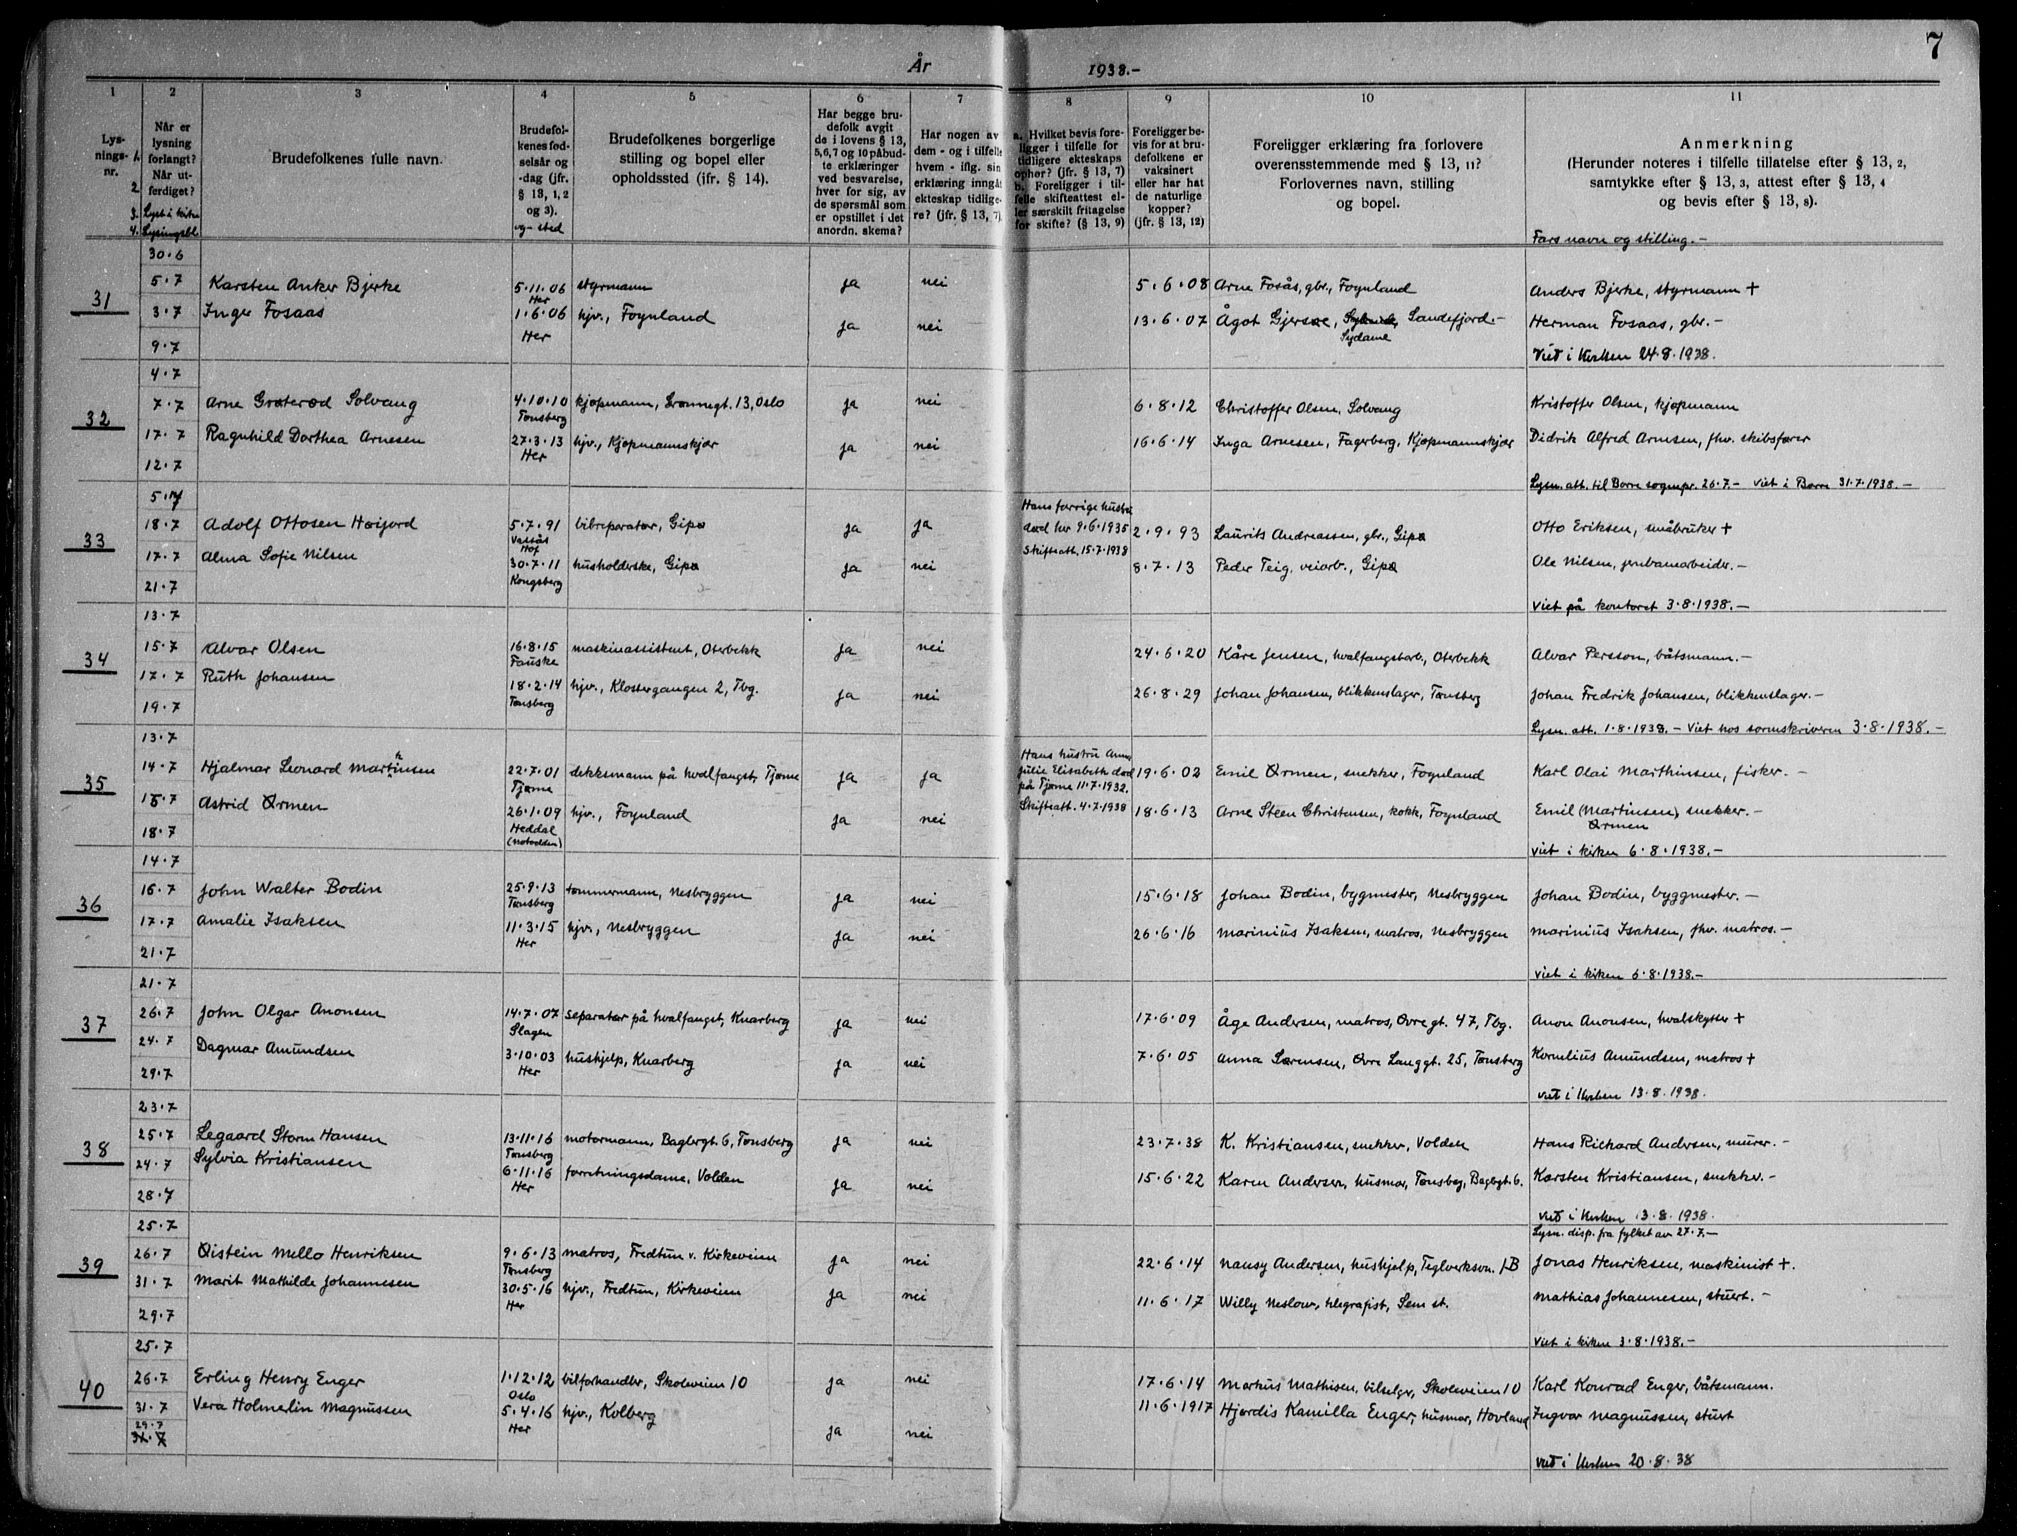 7
År 1938.-
1 2 3 4 5 6 7 8 9 10 11
Lysningsnr.
1.
2.
3.
4.
Når er lysning forlangt? Når utferdiget?
Lyst i kirke
Lysingsbl.
Brudefolkenes fulle navn.
Brudefolkenes fødselsår og -dag (jfr. § 13, 1, 2 og 3).
og -sted
Brudefolkenes borgerlige stilling og bopel eller opholdssted (ifr. § 14).
Har begge brudefolk avgit de i lovens § 13, 5, 6, 7 og 10 påbudte erklæringer ved besvarelse, hver for sig, av de spørsmål som er opstillet i det anordn. skema?
Har nogen av dem - og i tilfelle hvem - iflg. sin erklæring inngåt ekteskap tidligere? (jfr. § 13, 7)
a. Hvilket bevis foreligger i tilfelle for tidligere ekteskaps ophør? (jfr. § 13, 7)
b. Foreligger i tilfelle skifteattest eller særskilt fritagelse for skifte? (§ 13, 9)
Foreligger bevis for at brudefolkene er vaksinert eller har hat de naturlige kopper? (jfr. § 13, 12)
Foreligger erklæring fra forlovere overensstemmende med § 13, 11? Forlovernes navn, stilling og bopel.
Anmerkning
(Herunder noteres i tilfelle tillatelse efter § 13, 2, samtykke efter § 13, 3, attest efter § 13, 4 og bevis efter § 13, 8).
Fars navn og stilling.-
31
30.6
5.7
3.7
9.7
Karsten Anker Bjerke 5.11.06 Her styrmann ja nei 5.6.08 Arne Fosås, gbr., Foynland Anders Bjerke, styrmann +
Inger Fosaas 1.6.06 Her hjv., Foynland ja nei 13.6.07 Ågot Gjersøe, Sydame Sandefjord.- Herman Fosaas, gbr.-
Viet i kirken 24.8.1938.
32
4.7
7.7
17.7
12.7
Arne Græterød Solvang 4.10.10 Tønsberg kjøpmann, Grønnegt. 13, Oslo ja nei 6.8.12 Christoffer Olsen, Solvang Kristoffer Olsen, kjøpmann
Ragnhild Dorthea Arnesen 27.3.13 Her hjv., Kjøpmannskjær ja nei 16.6.14 Inga Arnesen, Fagerberg, Kjøpmannskjær Didrik Alfred Arnesen, fhv. skibsfører
Lysn. att. til Borre sognepr. 26.7.- Viet i Borre 31.7.1938.-
33
5.7
18.7
17.7
21.7
Adolf Ottosen Høijord 5.7.91 Vassås Hof bilreparatør, Gipø ja ja Hans forrige hustru død her 9.6.1935 Skifteatt. 15.7.1938 2.9.93 Laurits Andreassen, gbr., Gipø Otto Eriksen, småbruker +
Alma Sofie Nilsen 30.7.11 Kongsberg husholderske, Gipø ja nei 8.7.13 Peder Teig, veiarb., Gipø Ole Nilsen, jernbanearbeider.-
Viet på kontoret 3.8.1938.-
34
13.7
15.7
17.7
19.7
Alvar Olsen 16.8.15 Fauske maskinassistent, Oterbekk ja nei 24.6.20 Kåre Jensen, hvalfangstarb., Oterbekk Alvar Persson, båtsmann.-
Ruth Johansen 18.2.14 Tønsberg hjv., Klostergangen 2, Tbg. ja nei 26.8.29 Johan Johansen, blikkenslager, Tønsberg Johan Fredrik Johansen, blikkenslager.-
Lysn. att. 1.8.1938.- Viet hos sorenskriveren 3.8.1938.-
35
13.7
14.7
18.7
Hjalmar Leonard Marthinsen 22.7.01 Tjøme dekksmann på hvalfangst, Tjøme ja ja Hans hustru Anna Julie Elisabeth død på Tjøme 11.7.1932. Skifteatt. 4.7.1938 19.6.02 Emil Ormen, snekker, Foynland Karl Olai Marthinsen, fisker.-
Astrid Ormen 26.1.09 Heddal (Notodden) hjv., Foynland ja nei 18.6.13 Arne Steen Christensen, kokk, Foynland Emil (Martinsen) Ormen snekker.-
Viet i kirken 6.8.1938.-
36
14.7
16.7
17.7
21.7
John Walter Bodin 25.9.13 Tønsberg tømmermann, Nesbryggen ja nei 15.6.18 Johan Bodin, bygmester, Nesbryggen Johan Bodin, byggmester.-
Amalie Isaksen 11.3.15 Her hjv., Nesbryggen ja nei 26.6.16 Marinius Isaksen, matros, Nesbryggen Marinius Isaksen, fhv. matros.-
Viet i kirken 6.8.1938.-
37
21.7
26.7
24.7
29.7
John Olgar Anonsen 14.7.07 Slagen separatør på hvalfangst, Knarberg ja nei 17.6.09 Åge Andersen, matros, Øvregt. 47, Tbg. Anon Anonsen, hvalskytter +
Dagmar Amundsen 3.10.03 Her hushjelp, Knarberg ja nei 7.6.05 Anna Sørensen, Øvre Langgt. 25, Tønsberg Kornelius Amundsen, matros +
Viet i kirken 13.8.1938.
38
23.7
25.7
24.7
28.7
Legaard Storm Hansen 13.11.16 Tønsberg motormann, Baglergt. 6, Tønsberg ja nei 23.7.38 K. Kristiansen, snekker, Volden Hans Richard Andersen, murer.-
Sylvia Kristiansen 6.11.16 Her forretningsdame, Volden ja nei 15.6.22 Karen Andersen, husmor, Tønsberg, Baglergt. 6. Karsten Kristiansen, snekker.-
Viet i kirken 3.8.1938.
39
25.7
26.7
31.7
29.7
Lysn. disp. fra fylket av 27.7.-
Øistein Mello Henriksen 9.6.13 Tønsberg matros, Fredtun v. Kirkeveien ja nei 22.6.14 Nansy Andersen, hushjelp, Teglverksvn. 1B Jonas Henriksen, maskinist +.
Marit Mathilde Johannesen 30.5.16 Her hjv., Fredtun, Kirkeveien ja nei 11.6.17 Willy Neslow, telegrafist, Sem st. Mathias Johannesen, stuert.-
Viet i kirken 3.8.1938.-
40
25.7
26.7
31.7
29.7
31.7
Erling Henry Enger 1.12.12 Oslo bilforhandler, Skoleveien 10 ja nei 17.6.14 Markus Mathisen, bilselger, Skoleveien 10 Karl Konrad Enger, båtsmann.
Vera Holmelin Magnussen 5.4.16 Her hjv., Kolberg ja nei 11.6.1917 Hjørdis Kamilla Enger, husmor, Hovland Ingvar Magnussen, stuert
Viet i kirken 20.8.38